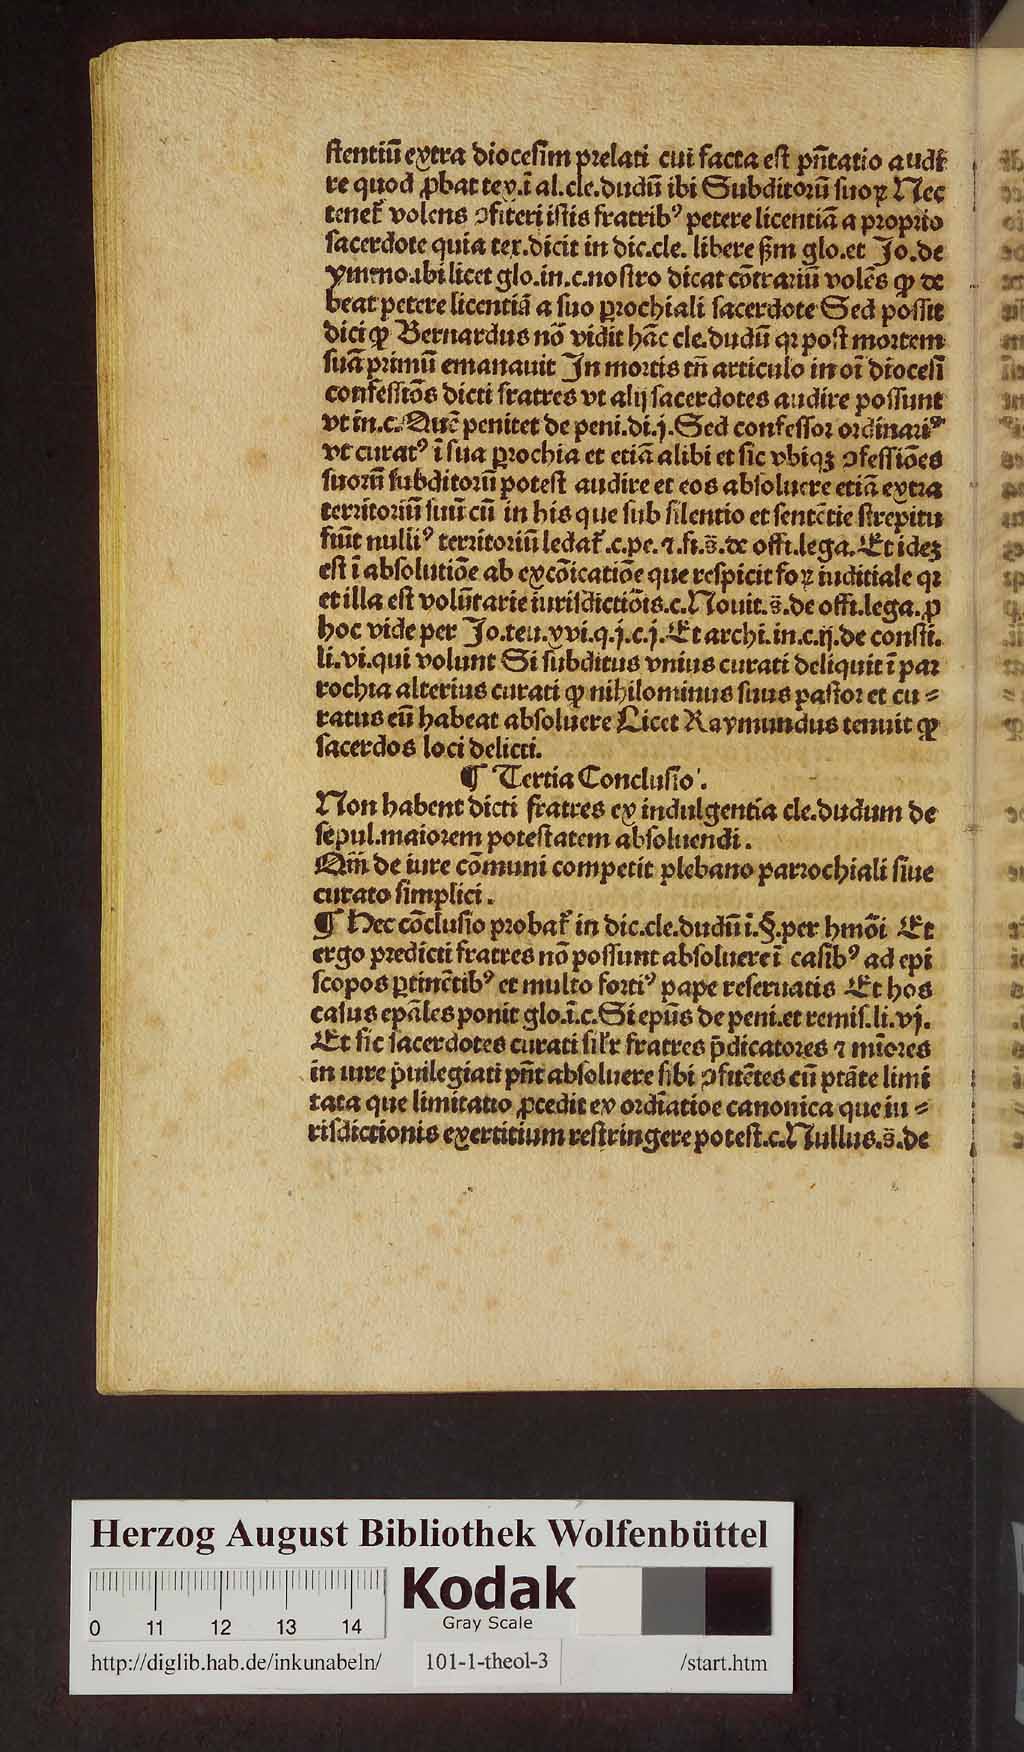 ſtentiū extra dioceſim prelati cui facta eſt pn̄tatio audi
re quod ꝓbat tex. ī al. cle. dudū ibi Subditorū ſuoꝝ Nec
teneť volens ꝯfiteri iſtis fratribꝰ petere licentiā a proprio
ſacerdote quia tex. dicit in dic. cle. libere ẜm glo. et Jo. de
ymmo. ibi licet glo. in. c. noſtro dicat cōtrariū volēs ꝙ de
beat petere licentiā a ſuo ꝑrochiali ſacerdote Sed poſſit
dici ꝙ Bernardus nō vidit hāc cle. dudū qꝛ poſt mortem
ſuā primū emanauit In mortis tn̄ articulo in oī dioceſi
confeſſiōs dicti fratres vt alij ſacerdotes audire poſſunt
vt in. c. Quē penitet de peni. di. j. Sed confeſſor ordinariꝰ
vt curatꝰ ī ſua ꝑrochia et etiā alibi et ſic vbiqꝫ ꝯfeſſiōes
ſuorū ſubditorū poteſt audire et eos abſoluere etiā extra
territoriū ſuū cū in his que ſub ſilentio et ſentētie ſtrepitu
fiūt nulliꝰ territoriū ledať. c. pe. ⁊. fi. s̄. de offi. lega. Et ideꝫ
eſt ī abſolutiōe ab excōicatiōe que reſpicit foꝝ iuditiale qꝛ
et illa eſt volūtarie iuriſdictiōis. c. Nouit. s̄. de offi. lega. ꝓ
hoc vide per Jo. teu. xvi. q. j. c. j. Et archi. in. c. ij. de conſti.
li. vi. qui volunt Si ſubditus vnius curati deliquit ī par
rochia alterius curati ꝙ nihilominus ſuus paſtor et cu⸗
ratus eū habeat abſoluere Licet Raymundus tenuit ꝙ
ſacerdos loci delicti.
¶ Tertia Concluſio.
Non habent dicti fratres ex indulgentia cle. dudum de
ſepul. maiorem poteſtatem abſoluendi.
Qm̄ de iure cōmuni competit plebano parrochiali ſiue
curato ſimplici.
¶ Hec cōcluſio probať in dic. cle. dudū ī. §. per hmōi Et
ergo predicti fratres nō poſſunt abſoluere ī caſibꝰ ad epi
ſcopos ꝑtinētibꝰ et multo fortiꝰ pape reſeruatis Et hos
caſus epāles ponit glo. ī. c. Si epūs de peni. et remiſ. li. vj.
Et ſic ſacerdotes curati ſilr̄ fratres p̄dicatores ⁊ mīores
in iure p̄uilegiati pn̄t abſoluere ſibi ꝯfitētes cū ptāte limi
tata que limitatio ꝓcedit ex ordīatioe canonica que iu⸗
riſdictionis exertitium reſtringere poteſt. c. Nullus. s̄. de
Herzog August Bibliothek Wolfenbüttel
Kodak
Gray Scale
0 11 12 13 14
http://diglib.hab.de/inkunabeln/ 101-1-theol-3 /start.htm